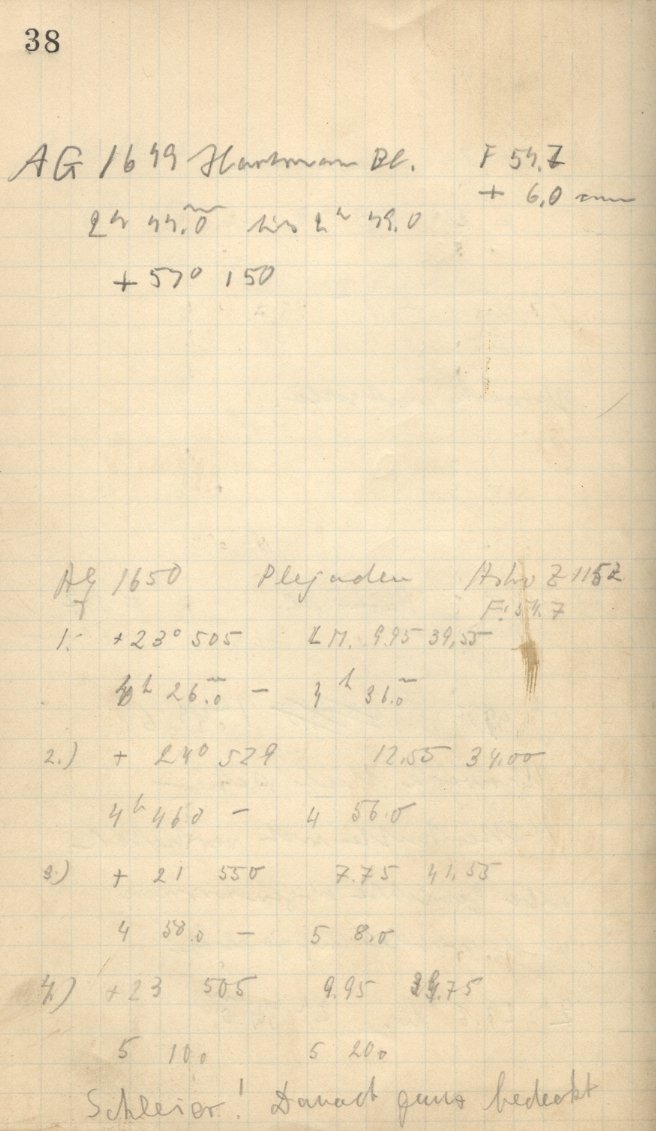 38
AG 1649 Hartmann Bl. F 54.7
+ 6,0 mm
2h 44.0m bis 2h 49.0
+ 57° 150
AG 1650 Plejaden Astro Z 1152
F: 54.7
1. +23° 505 L M. 9.95 39,55
4h 26.0m — 4h 36.0m
2.) + 24° 529 12,55 34.00
4h 46 0 — 4 56.0
3.) + 21 550 7.75 41,55
4 58.0 — 5 8,0
4.) +23 505 9.95 39.75
5 10.0 5 20.0
Schleier! Danach ganz bedeckt